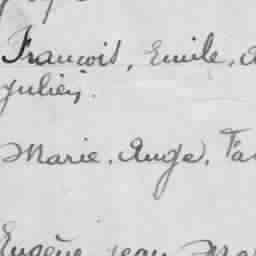 François, Emile,
Julien.
Marie, Ange,
Eugène, Jean